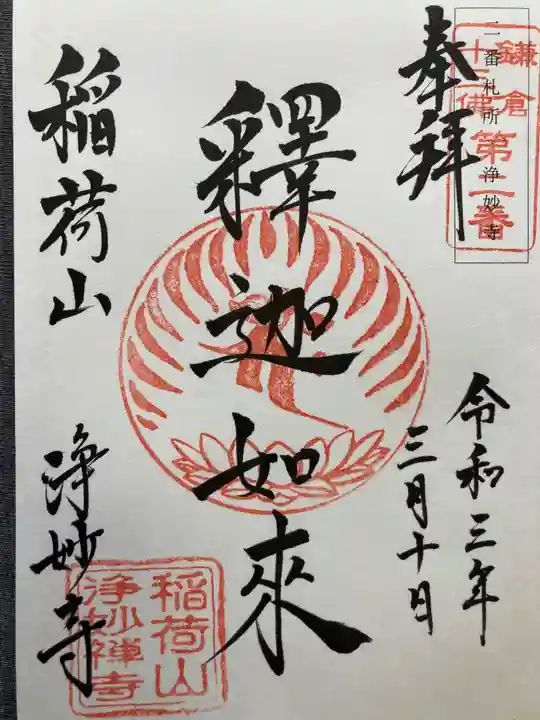 鎌倉
十三佛
第二番
二番札所 浄妙寺
奉拝
令和三年
三月十日
釋迦如來
稲荷山
浄妙寺
稲荷山
浄妙禅寺